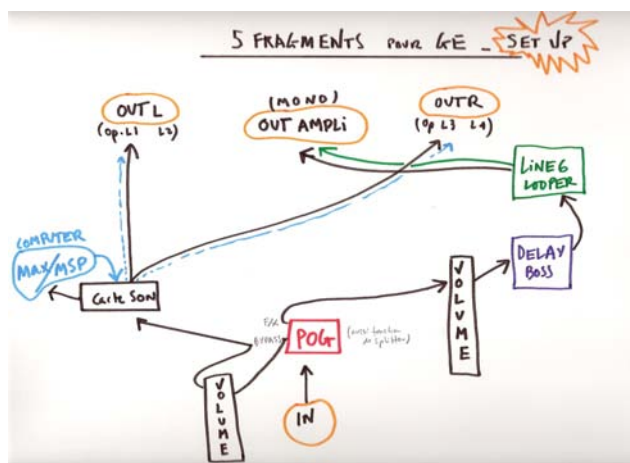 5 FRAGMENTS POUR GE _ SET UP
OUT L
(OP.L1 L2)
(MONO)
OUT AMPLi
OUT R
(OP L3 L4)
LiNE6
LOOPER
COMPUTER
MAX/MSP
Carte SON
DELAY
BOSS
VOLUME
BYPASS
POG
(aussi fonction
de splitter)
VOLUME
IN